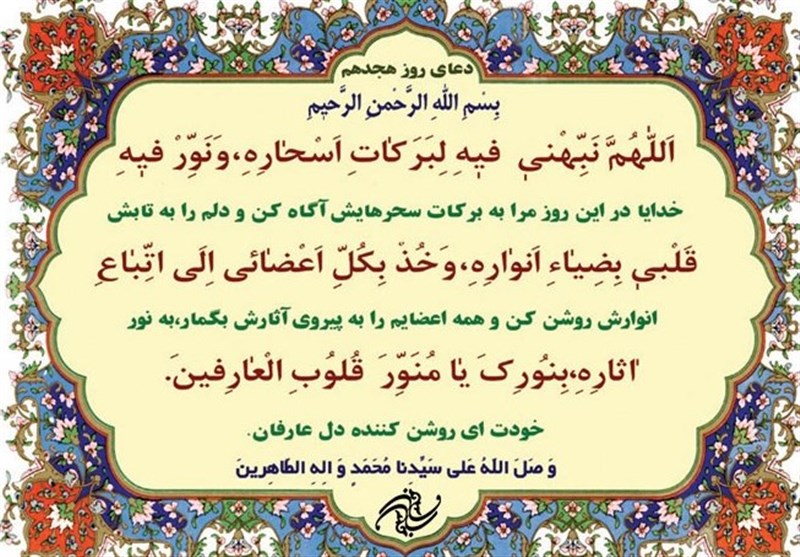 دعای روز هجدهم
بِسْمِ اللهِ الرَّحْمنِ الرَّحیمِ
اَللّٰهُمَّ نَبِّهْنی فیهِ لِبَرَکٰاتِ اَسْحٰارِهِ،وَنَوِّرْ فیهِ
خدایا در این روز مرا به برکات سحرهایش آگاه کن و دلم را به تابش
قَلْبی بِضِیٰاءِ اَنوٰارِهِ،وَخُذْ بِکُلِّ اَعْضٰائی اِلَی اتِّبٰاعِ
انوارش روشن کن و همه اعضایم را به پیروی آثارش بگمار،به نور
اٰثارِهِ،بِنُورِکَ یٰا مُنَوِّرَ قُلُوبِ الْعٰارِفینَ.
خودت ای روشن کننده دل عارفان.
وَ صَلَ اللهُ عَلی سَیِّدنا مُحَمَدٍ وَ الِهِ الطّاهِرینَ